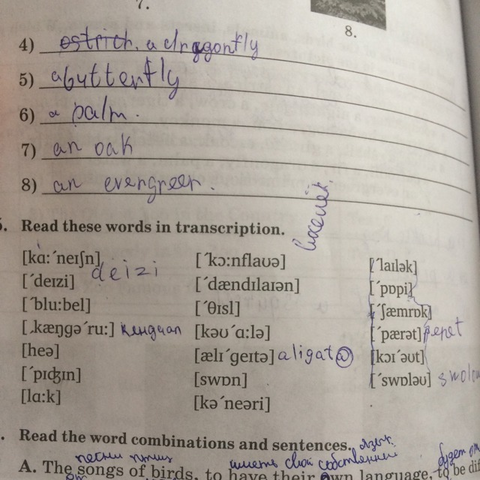 7.
8.
4) ostrich. a dragonfly
5) a butterfly
6) a palm.
7) an oak
8) an evergreen.
Read these words in transcription.
[kɑːˈneɪʃn] [ˈkɔːnflaʊə] [ˈlaɪlək]
[ˈdeɪzi] deizi [ˈdændɪlaɪən] [ˈpɒpi]
[ˈbluːbel] [ˈθɪsl] [ˈʃæmrɒk]
[ˌkæŋgəˈruː] [kəʊˈɑːlə] [ˈpærət]
[heə] [ælɪˈgeɪtə] aligat [kɔɪˈəʊt]
[ˈpɪʤɪn] [swɒn] [ˈswɒləʊ]
[lɑːk] [kəˈneəri]
Read the word combinations and sentences.
язык.
песни птиц иметь свой собственный будет
A. The songs of birds, to have their own language, to be di